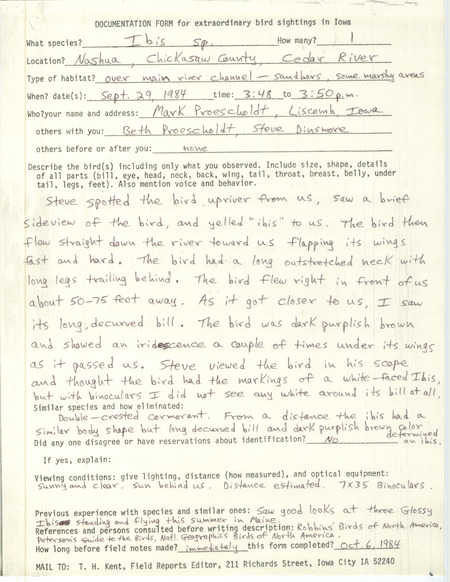 DOCUMENTATION FORM for extraordinary bird sightings in Iowa
What species? Ibis sp. How many? 1
Location? Nashua, Chickasaw County, Cedar River
Type of habitat? over main river channel - sandbars, some marshy areas
When? date(s): Sept. 29, 1984 time: 3:48 to 3:50 p.m.
Who? your name and address: Mark Proescholdt, Liscomb, Iowa
others with you: Beth Proescholdt, Steve Dinsmore
others before or after you: none
Describe the bird(s) including only what you observed. Include size, shape, details
of all parts (bill, eye, head, neck, back, wing, tail, throat, breast, belly, under
tail, legs, feet). Also mention voice and behavior.
Steve spotted the bird upriver from us, saw a brief
sideview of the bird, and yelled "ibis" to us. The bird then
flew straight down the river toward us flapping its wings
fast and hard. The bird had a long outstretched neck with
long legs trailing behind. The bird flew right in front of us
about 50-75 feet away. As it got closer to us, I saw
its long, decurved bill. The bird was dark purplish brown
and showed an iridescence a couple of times under its wings
as it passed us. Steve viewed the bird in his scope
and thought the bird had the markings of a white-faced Ibis,
but with binoculars I did not see any white around its bill at all.
Similar species and how eliminated:
Double-crested Cormorant. From a distance the ibis had a
similar body shape but long decurved bill and dark purplish brown color
determined
Did any one disagree or have reservations about identification? No an ibis.
If yes, explain:
Viewing conditions: give lighting, distance (how measured), and optical equipment:
sunny and clear. sun behind us. Distance estimated. 7x35 Binoculars.
Previous experience with species and similar ones: Saw good looks at three Glossy
Ibis standing and flying this summer in Maine.
References and persons consulted before writing description: Robbins' Birds of North America,
Peterson's Guide to the Birds, Natl. Geographics Birds of North America.
How long before field notes made? immediately this form completed? Oct. 6, 1984
MAIL TO: T. H. Kent, Field Reports Editor, 211 Richards Street, Iowa City IA 52240